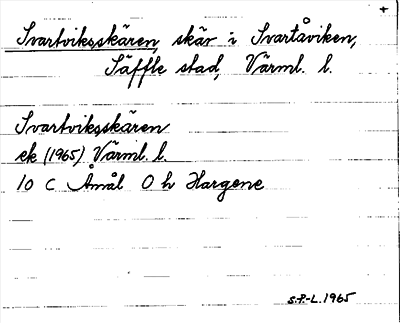 +
Svartviksskären, skär i Svartåviken,
Säffle stad, Värml. l.
Svartviksskären
ek (1965) Värml. l.
10 C Åmål O h Hargene
S.P.-L. 1965